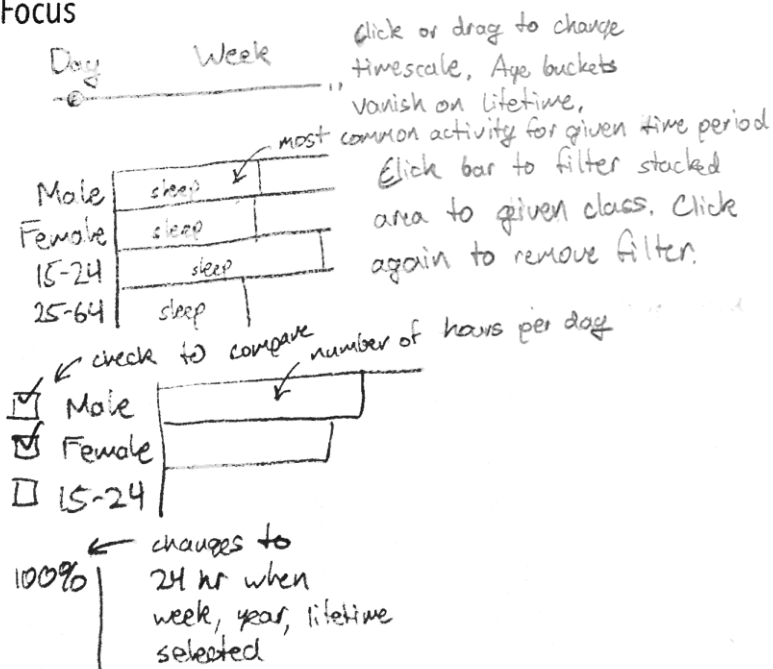 Focus
Day Week
Click or drag to change
timescale. Age buckets
vanish on lifetime.
most common activity for given time period
Male sleep
Click bar to filter stacked
Female sleep
area to given class. Click
15-24 sleep
again to remove filter.
25-64 sleep
check to compare
number of hours per day
Male
Female
15-24
100%
changes to
24 hr when
week, year, lifetime
selected